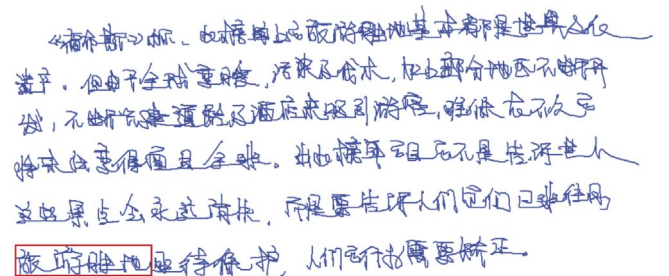 《福布斯》称,此榜单上的旅游胜地基本都是世界文化
遗产。但由于全球变暖,污染及伐木,加上部分地区不断开
发,不断兴建道路及酒店来吸引游客,难保在不久后
将来会变得面目全非。出此榜单目的不是告诉世人
这些景点会永远消失,而是要告诉人们它们已非往日
旅游胜地亟待保护,人们言行也需要矫正。